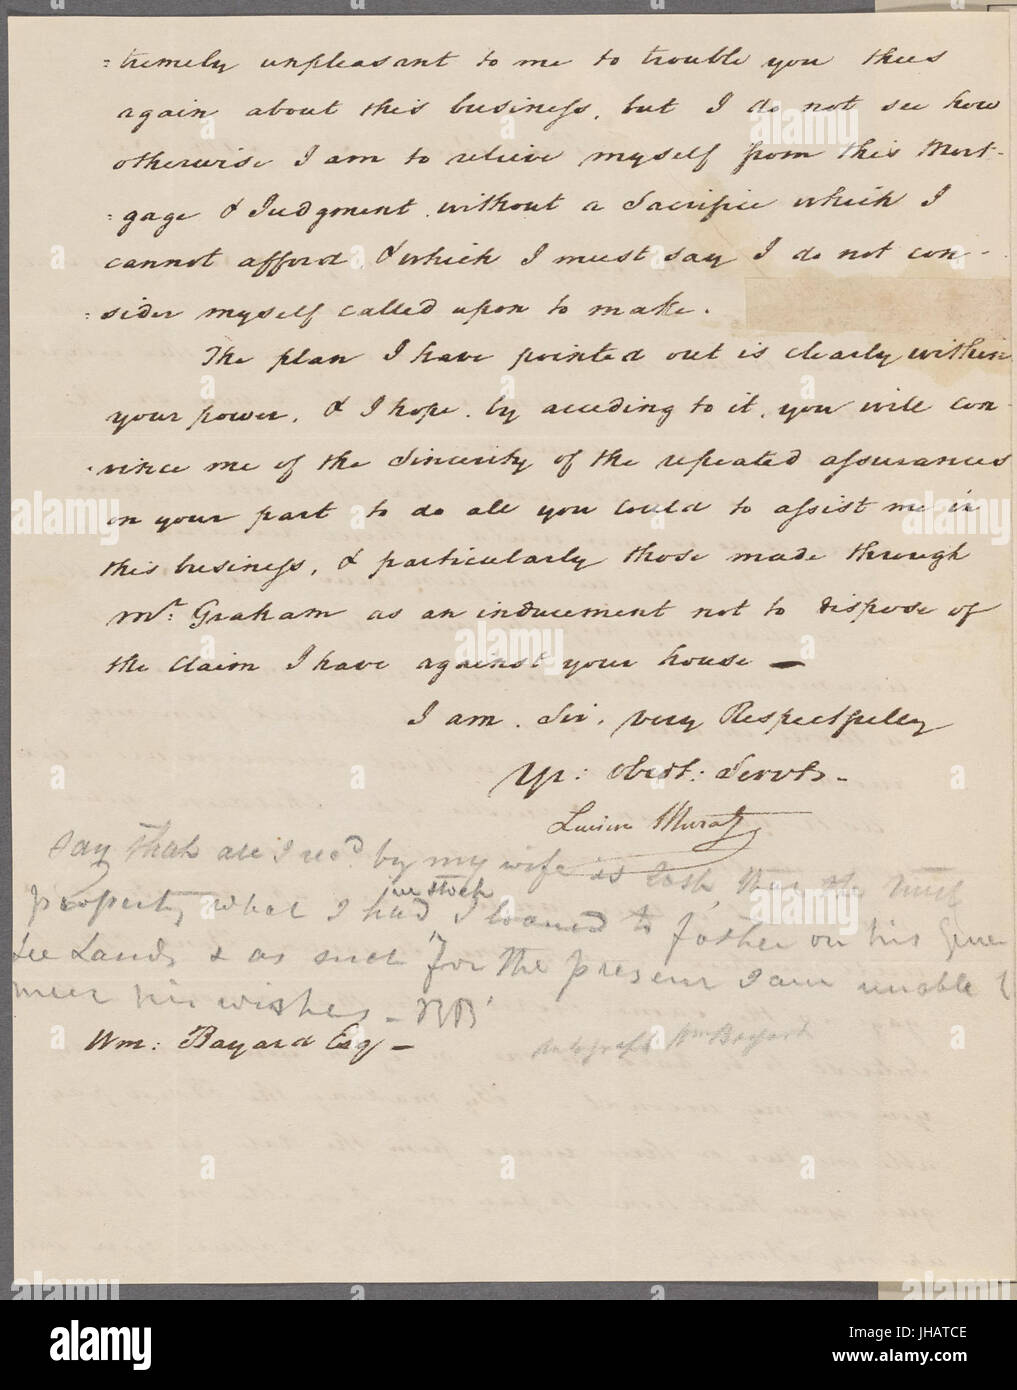 :tremely unpleasant to me to trouble you thus
again about this business, but I do not see how
otherwise I am to relieve myself from this Mort-
:gage & Judgment without a Sacrifice which I
cannot afford, & which I must say I do not con-
:sider myself called upon to make.
The plan I have pointed out is clearly within
your power, & I hope, by acceding to it, you will con-
vince me of the Sincerity of the repeated assurances
on your part to do all you could to assist me in
this business, & particularly those made through
Mr. Graham as an inducement not to dispose of
the Claim I have against your house —
I am, Sir, very Respectfully
Yr: obedt: Servt.
Say that all I recd. by my wife is
property, what I had in stock, I loaned to father on his Gene
see Lands & as such for the present I am unable to
meet his wishes — RB
Wm: Bayard Esq —
Autograph Wm Bayard
alamy
alamy
Image ID: JHATCE
www.alamy.com